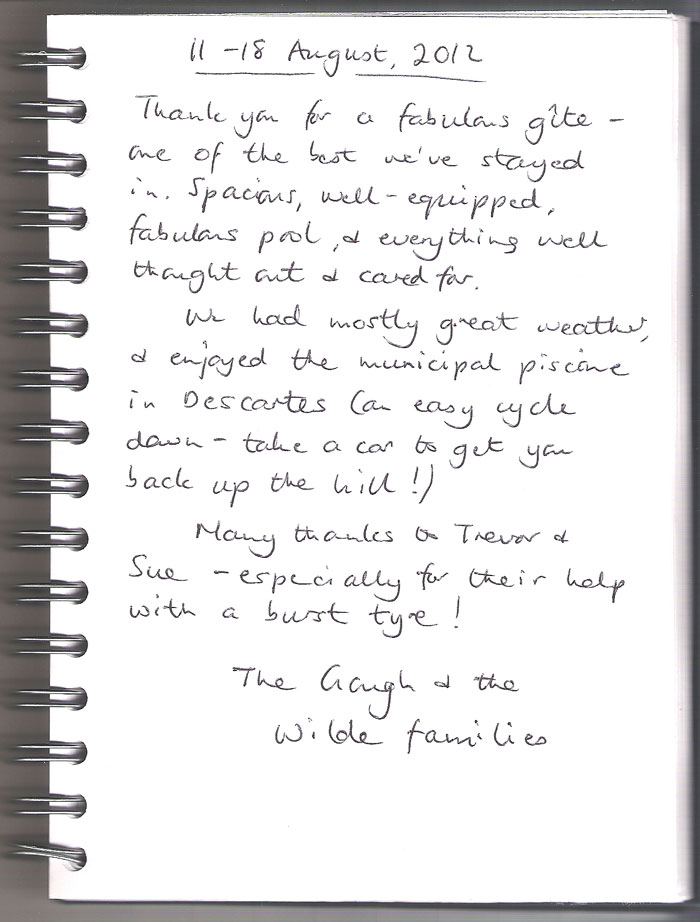 11 - 18 August, 2012
Thank you for a fabulous gîte -
one of the best we've stayed
in. Spacious, well-equipped,
fabulous pool, & everything well
thought out & cared for.
We had mostly great weather,
& enjoyed the municipal piscine
in Descartes (an easy cycle
down - take a car to get you
back up the hill!)
Many thanks to Trevor &
Sue - especially for their help
with a burst tyre!
The Gough & the
Wilde families